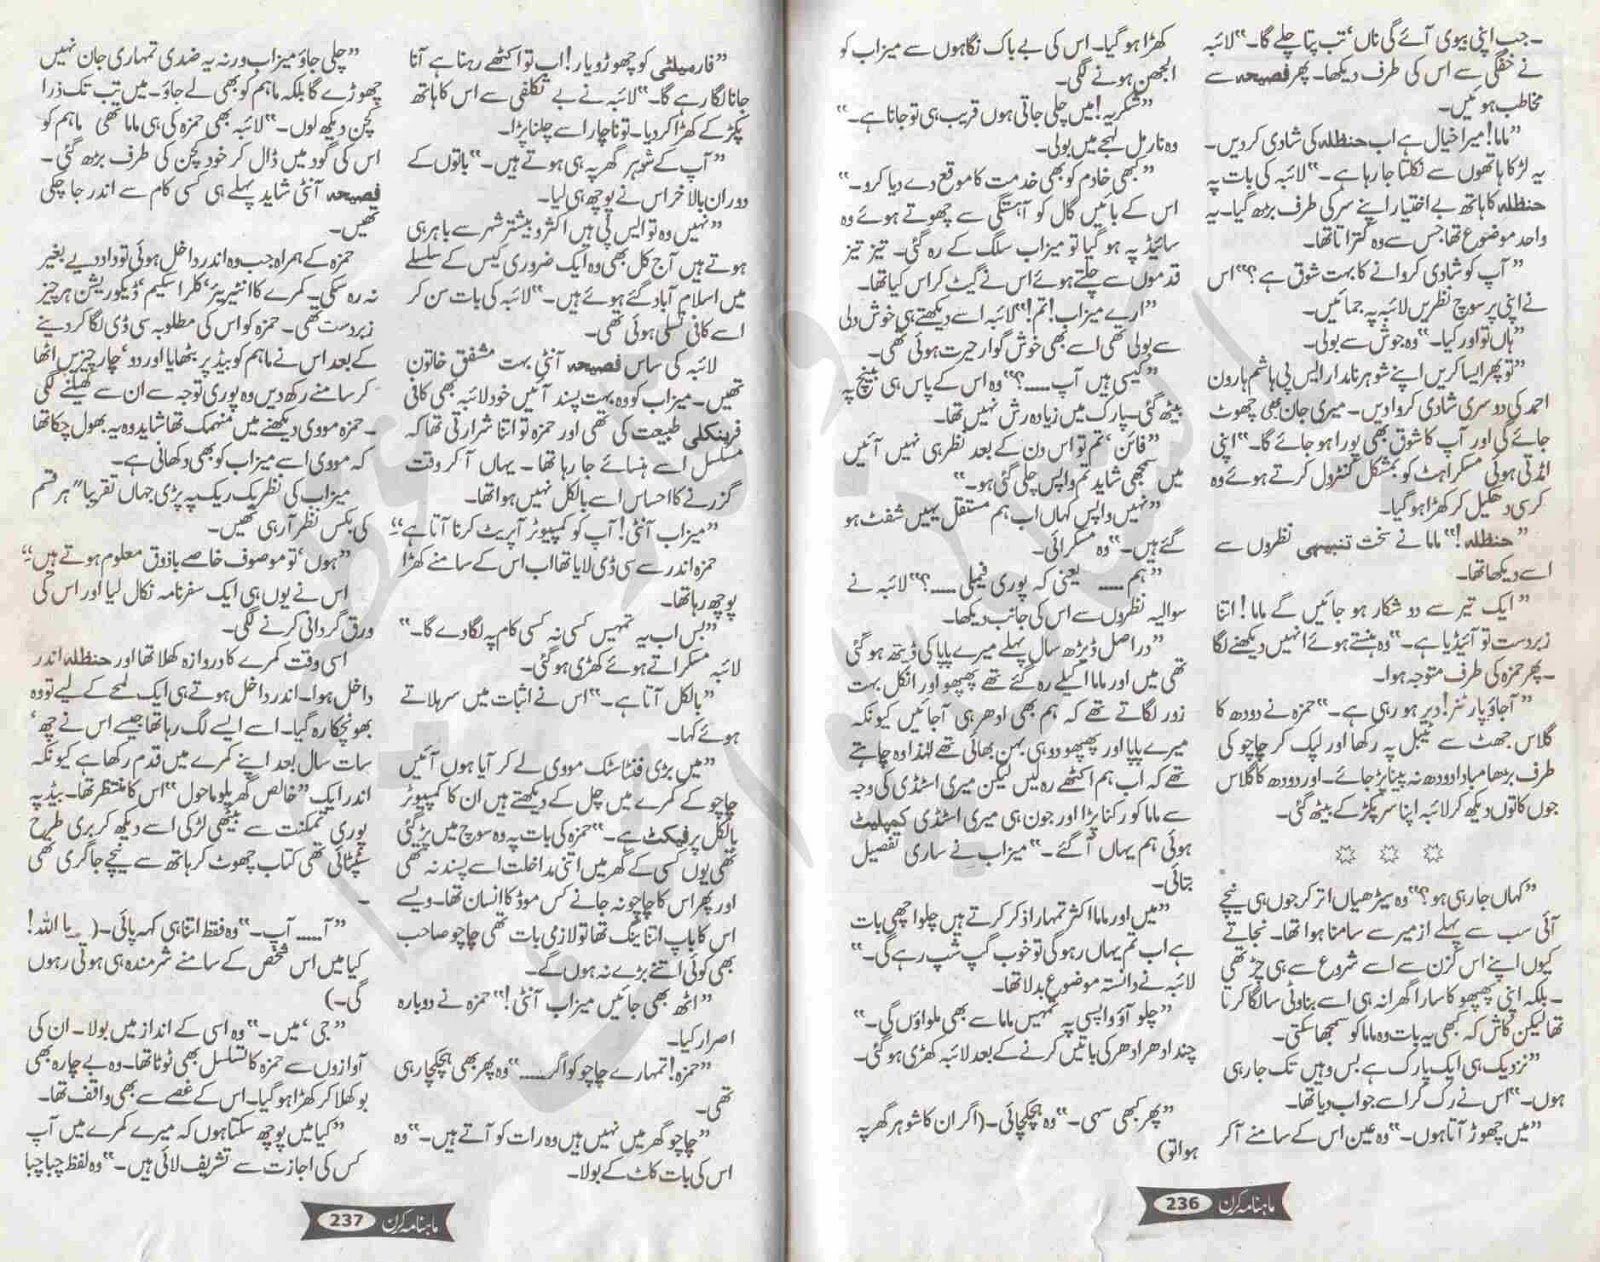 ۔ جب اپنی بیوی آئے گی ناں‘ تب پتا چلے گا۔“ لائبہ
نے خفگی سے اس کی طرف دیکھا۔ پھر فصیحہ سے
مخاطب ہوئیں۔
”ماما! میرا خیال ہے اب حنظلہ کی شادی کر دیں۔
یہ لڑکا ہاتھوں سے نکلتا جا رہا ہے۔“ لائبہ کی بات پہ
حنظلہ کا ہاتھ بے اختیار اپنے سر کی طرف بڑھ گیا۔ یہ
واحد موضوع تھا جس سے وہ کتراتا تھا۔
”آپ کو شادی کروانے کا بہت شوق ہے؟“ اس
نے اپنی پر سوچ نظریں لائبہ پہ جمائیں۔
”ہاں تو اور کیا۔“ وہ جوش سے بولی۔
”تو پھر ایسا کریں اپنے شوہر نامدار ایس پی ہاشم ہارون
احمد کی دوسری شادی کروا دیں۔ میری جان بھی چھوٹ
جائے گی اور آپ کا شوق بھی پورا ہو جائے گا۔“ اپنی
امڈتی ہوئی مسکراہٹ کو بمشکل کنٹرول کرتے ہوئے وہ
کرسی دھکیل کر کھڑا ہو گیا۔
”حنظلہ!“ ماما نے سخت تنبیہی نظروں سے
اسے دیکھا تھا۔
”ایک تیر سے دو شکار ہو جائیں گے ماما! اتنا
زبردست تو آئیڈیا ہے۔“ وہ ہنستے ہوئے انہیں دیکھنے لگا
۔ پھر حمزہ کی طرف متوجہ ہوا۔
”آ جاؤ پارٹنر! دیر ہو رہی ہے۔“ حمزہ نے دودھ کا
گلاس جھٹ سے ٹیبل پہ رکھا اور لپک کر چاچو کی
طرف بڑھا مبادا دودھ نہ پینا پڑ جائے۔ اور دودھ کا گلاس
جوں کا توں دیکھ کر لائبہ اپنا سر پکڑ کے بیٹھ گئی۔
”کہاں جا رہی ہو؟“ وہ سیڑھیاں اتر کر جوں ہی نیچے
آئی سب سے پہلے ازمیر سے سامنا ہوا تھا۔ نجانے
کیوں اپنے اس کزن سے اسے شروع سے ہی چڑ تھی
۔ بلکہ اپنی پھپھو کا سارا گھرانہ ہی اسے بناوٹی سا لگا کرتا
تھا لیکن کاش کہ کبھی یہ بات وہ ماما کو سمجھا سکتی۔
”نزدیک ہی ایک پارک ہے بس وہیں تک جا رہی
ہوں۔“ اس نے رک کر اسے جواب دیا تھا۔
”میں چھوڑ آتا ہوں۔“ وہ عین اس کے سامنے آ کر
کھڑا ہو گیا۔ اس کی بے باک نگاہوں سے میزاب کو
الجھن ہونے لگی۔
”شکریہ! میں چلی جاتی ہوں قریب ہی تو جانا ہے۔“
وہ نارمل لہجے میں بولی۔
”کبھی خادم کو بھی خدمت کا موقع دے دیا کرو۔“
اس کے بائیں گال کو آہستگی سے چھوتے ہوئے وہ
سائیڈ پہ ہو گیا تو میزاب سلگ کے رہ گئی۔ تیز تیز
قدموں سے چلتے ہوئے اس نے گیٹ کراس کیا تھا۔
”ارے میزاب! تم!“ لائبہ اسے دیکھتے ہی خوش دلی
سے بولی تھی اسے بھی خوش گوار حیرت ہوئی تھی۔
”کیسی ہیں آپ.....؟“ وہ اس کے پاس ہی بینچ پہ
بیٹھ گئی۔ پارک میں زیادہ رش نہیں تھا۔
”فائن‘ تم تو اس دن کے بعد نظر ہی نہیں آئیں
میں سمجھی شاید تم واپس چلی گئی ہو۔“
”نہیں واپس کہاں اب ہم مستقل یہیں شفٹ ہو
گئے ہیں۔“ وہ مسکرائی۔
”ہم..... یعنی کہ پوری فیملی.....؟“ لائبہ نے
سوالیہ نظروں سے اس کی جانب دیکھا۔
”دراصل ڈیڑھ سال پہلے میرے پاپا کی ڈیتھ ہو گئی
تھی میں اور ماما اکیلے رہ گئے تھے پھپھو اور انکل بہت
زور لگاتے تھے کہ ہم بھی ادھر ہی آ جائیں کیونکہ
میرے پاپا اور پھپھو دو ہی بہن بھائی تھے لہٰذا وہ چاہتے
تھے کہ اب ہم اکٹھے رہ لیں لیکن میری اسٹڈی کی وجہ
سے ماما کو رکنا پڑا اور جون ہی میری اسٹڈی کمپلیٹ
ہوئی ہم یہاں آ گئے۔“ میزاب نے ساری تفصیل
بتائی۔
”میں اور ماما اکثر تمہارا ذکر کرتے ہیں چلو اچھی بات
ہے اب تم یہاں رہو گی تو خوب گپ شپ رہے گی۔“
لائبہ نے دانستہ موضوع بدلا تھا۔
”چلو آؤ واپسی پہ تمہیں ماما سے بھی ملواؤں گی۔“
چند ادھر ادھر کی باتیں کرنے کے بعد لائبہ کھڑی ہو گئی۔
”پھر کبھی سہی۔“ وہ ہچکچائی۔ (اگر ان کا شوہر گھر پہ
ہوا تو)
ماہنامہ کرن 236
”فارمیلٹی کو چھوڑو یار! اب تو اکٹھے رہنا ہے آنا
جانا لگا رہے گا۔“ لائبہ نے بے تکلفی سے اس کا ہاتھ
پکڑ کے کھڑا کر دیا۔ تو ناچار اسے چلنا پڑا۔
”آپ کے شوہر گھر پہ ہی ہوتے ہیں۔“ باتوں کے
دوران بالاخر اس نے پوچھ ہی لیا۔
”نہیں وہ تو ایس پی ہیں اکثر و بیشتر شہر سے باہر ہی
ہوتے ہیں آج کل بھی وہ ایک ضروری کیس کے سلسلے
میں اسلام آباد گئے ہوئے ہیں۔“ لائبہ کی بات سن کر
اسے کافی تسلی ہوئی تھی۔
لائبہ کی ساس فصیحہ آنٹی بہت مشفق خاتون
تھیں۔ میزاب کو وہ بہت پسند آئیں خود لائبہ بھی کافی
فرینکلی طبیعت کی تھی اور حمزہ تو اتنا شرارتی تھا کہ
مسلسل اسے ہنسائے جا رہا تھا۔ یہاں آ کر وقت
گزرنے کا احساس اسے بالکل نہیں ہوا تھا۔
”میزاب آنٹی! آپ کو کمپیوٹر آپریٹ کرنا آتا ہے؟“
حمزہ اندر سے سی ڈی لایا تھا اب اس کے سامنے کھڑا
پوچھ رہا تھا۔
”بس اب یہ تمہیں کسی نہ کسی کام پہ لگا دے گا۔“
لائبہ مسکراتے ہوئے کھڑی ہو گئی۔
”بالکل آتا ہے۔“ اس نے اثبات میں سر ہلاتے
ہوئے کہا۔
”میں بڑی فنٹاسٹک مووی لے کر آیا ہوں آئیں
چاچو کے کمرے میں چل کے دیکھتے ہیں ان کا کمپیوٹر
بالکل پرفیکٹ ہے۔“ حمزہ کی بات پہ وہ سوچ میں پڑ گئی
تھی یوں کسی کے گھر میں اتنی مداخلت اسے پسند نہ تھی
اور پھر اس کا چاچو نہ جانے کس موڈ کا انسان تھا۔ ویسے
اس کا باپ اتنا ینگ تھا تو لازمی بات تھی چاچو صاحب
بھی کوئی اتنے بڑے نہ ہوں گے۔
”اٹھ بھی جائیں میزاب آنٹی!“ حمزہ نے دوبارہ
اصرار کیا۔
”حمزہ! تمہارے چاچو کو اگر.....“ وہ پھر بھی ہچکچا رہی
تھی۔
”چاچو گھر میں نہیں ہیں وہ رات کو آتے ہیں۔“ وہ
اس کی بات کاٹ کے بولا۔
”چلی جاؤ میزاب ورنہ یہ ضدی تمہاری جان نہیں
چھوڑے گا بلکہ ماہم کو بھی لے جاؤ۔ میں تب تک ذرا
کچن دیکھ لوں۔“ لائبہ بھی حمزہ کی ہی ماما تھی ماہم کو
اس کی گود میں ڈال کر خود کچن کی طرف بڑھ گئی۔
فصیحہ آنٹی شاید پہلے ہی کسی کام سے اندر جا چکی
تھیں۔
حمزہ کے ہمراہ جب وہ اندر داخل ہوئی تو داد دیے بغیر
نہ رہ سکی۔ کمرے کا انٹیریئر‘ کلر اسکیم‘ ڈیکوریشن ہر چیز
زبردست تھی۔ حمزہ کو اس کی مطلوبہ سی ڈی لگا کر دینے
کے بعد اس نے ماہم کو بیڈ پر بٹھایا اور دو‘ چار چیزیں اٹھا
کر سامنے رکھ دیں وہ پوری توجہ سے ان سے کھیلنے لگی
۔ حمزہ مووی دیکھنے میں منہمک تھا شاید وہ یہ بھول چکا تھا
کہ مووی اسے میزاب کو بھی دکھانی ہے۔
میزاب کی نظر بک ریک پہ پڑی جہاں تقریبا” ہر قسم
کی بکس نظر آ رہی تھیں۔
”ہوں‘ تو موصوف خاصے باذوق معلوم ہوتے ہیں۔“
اس نے یوں ہی ایک سفرنامہ نکال لیا اور اس کی
ورق گردانی کرنے لگی۔
اسی وقت کمرے کا دروازہ کھلا تھا اور حنظلہ اندر
داخل ہوا۔ اندر داخل ہوتے ہی ایک لمحے کے لیے تو وہ
بھونچکا رہ گیا۔ اسے ایسے لگ رہا تھا جیسے اس نے چھ‘
سات سال بعد اپنے کمرے میں قدم رکھا ہے کیونکہ
اندر ایک ”خالص گھریلو ماحول“ اس کا منتظر تھا۔ بیڈ پہ
پوری تمکنت سے بیٹھی لڑکی اسے دیکھ کر بری طرح
سٹپٹائی تھی کتاب چھوٹ کر ہاتھ سے نیچے جا گری تھی
۔
”آ..... آپ۔“ وہ فقط اتنا ہی کہہ پائی۔ (یا اللہ!
کیا میں اس شخص کے سامنے شرمندہ ہی ہوتی رہوں
گی۔)
”جی‘ میں۔“ وہ اسی کے انداز میں بولا۔ ان کی
آوازوں سے حمزہ کا تسلسل بھی ٹوٹا تھا۔ وہ بے چارہ بھی
بوکھلا کر کھڑا ہو گیا۔ اس کے غصے سے بھی واقف تھا۔
”کیا میں پوچھ سکتا ہوں کہ میرے کمرے میں آپ
کس کی اجازت سے تشریف لائی ہیں۔“ وہ لفظ چبا چبا
ماہنامہ کرن 237